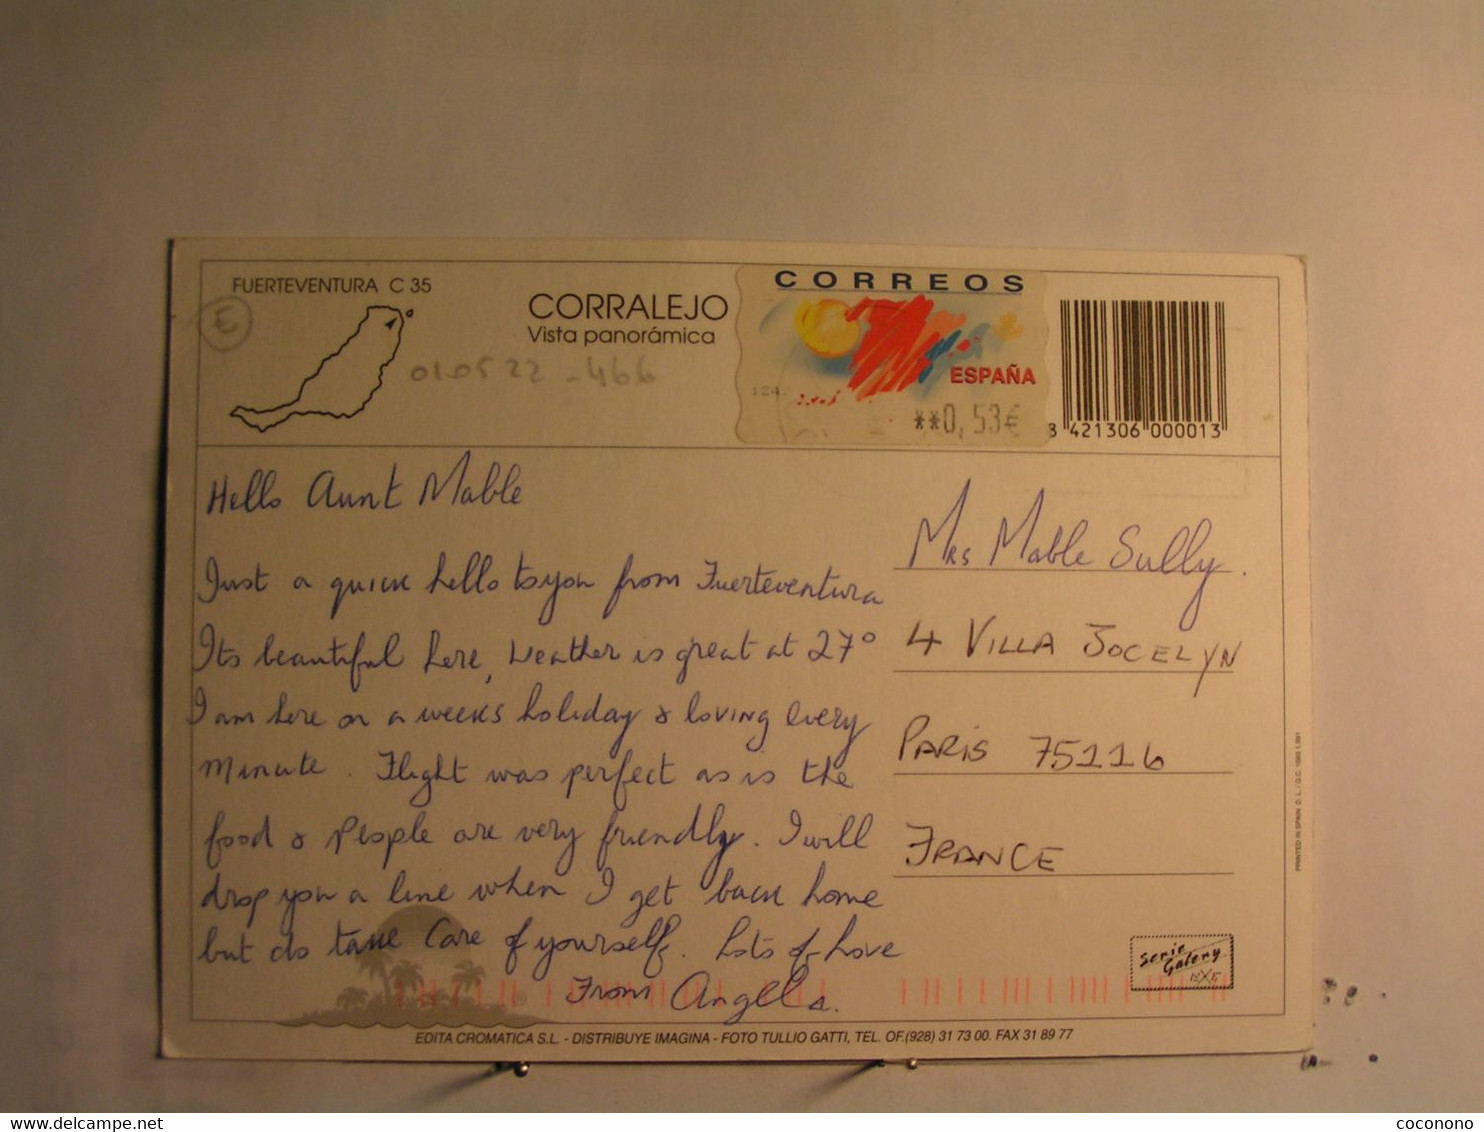 FUERTEVENTURA C 35
E
CORRALEJO
Vista panorámica
010522 - 466
CORREOS
ESPAÑA
**0,53€
8 421306 000013
Hello Aunt Mable
Just a quick hello to you from Fuerteventura
Its beautiful here, Weather is great at 27°
I am here on a weeks holiday & loving every
minute. Flight was perfect as is the
food & people are very friendly. I will
drop you a line when I get back home
but do take Care of yourself. Lots of Love
From Angella.
Mrs Mable Sully.
4 VILLA JOCELYN
PARIS 75116
FRANCE
Serie
Galery
EDITA CROMATICA S.L. - DISTRIBUYE IMAGINA - FOTO TULLIO GATTI, TEL. OF.(928) 31 73 00. FAX 31 89 77
PRINTED IN SPAIN
coconono